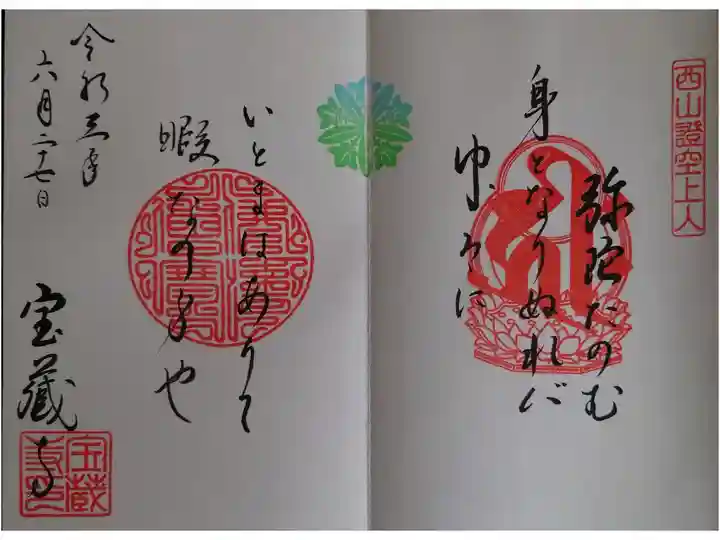 西山證空上人
弥陀たのむ
身となりぬれバ
中々に
いとまはありて
暇なの身や
令和三年
六月二十七日
宝蔵寺
宝蔵